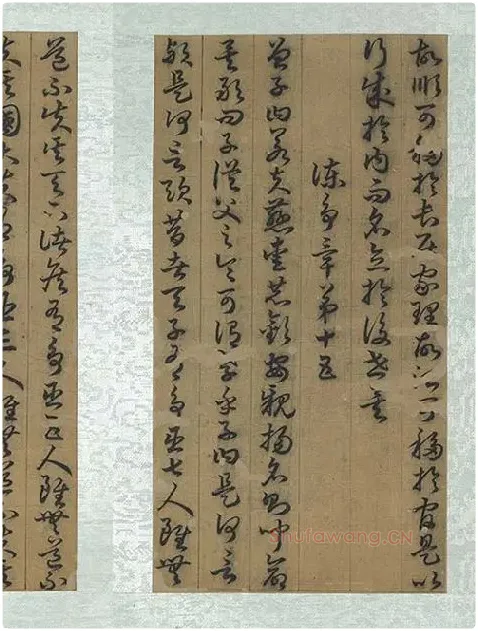 故順可移於長居家理故治可移於官是以
行成於內而名立於後世矣
諫爭章第十五
曾子曰若夫慈愛恭敬安親揚名則聞命
矣敢問子從父之令可謂孝乎子曰是何言
歟是何言歟昔者天子有爭臣七人雖無
道不失其天下諸侯有爭臣五人雖無道不
失其國大夫有爭臣三人雖無道不失其
shufawang.CN